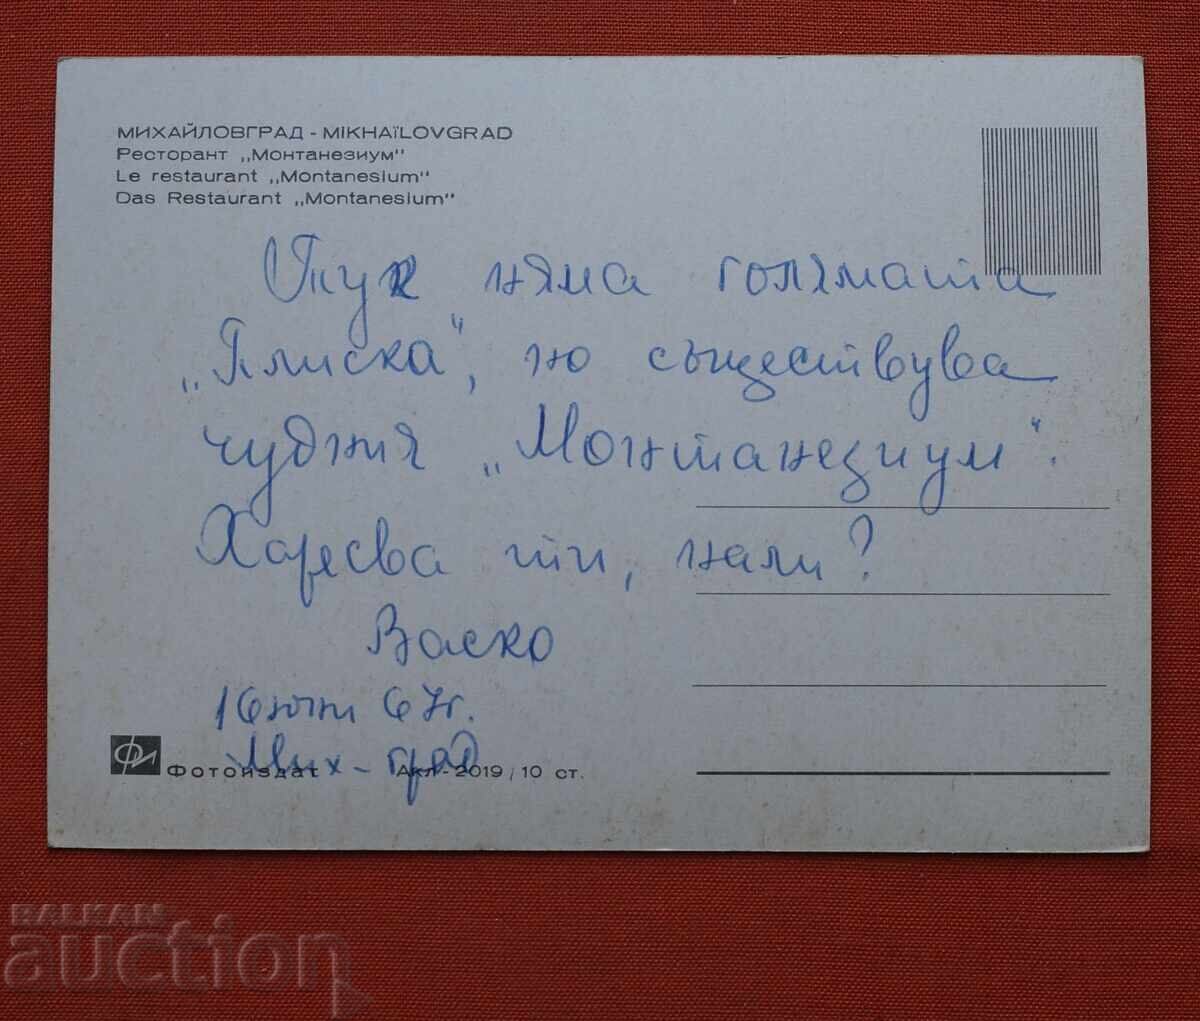 МИХАЙЛОВГРАД - MIKHAÏLOVGRAD
Ресторант „Монтанезиум"
Le restaurant „Montanesium"
Das Restaurant „Montanesium"
Тук няма голямата
„Плиска", но съществува
чудния „Монтанезиум".
Харесва ти, нали?
Васко
16 юни 67г.
Мих-град
Фотоиздат Акл-2019/10 ст.
BALKAN
auction